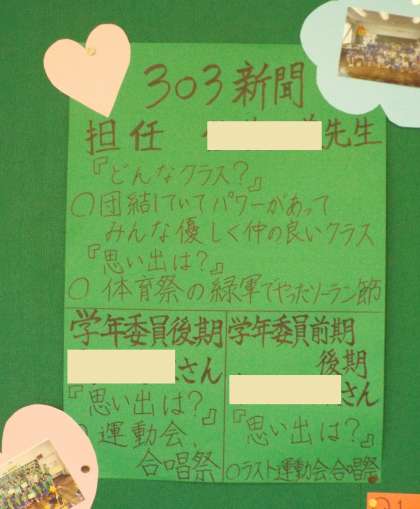 303新聞
担任 先生
『どんなクラス?』
○団結していてパワーがあって
みんな優しく仲の良いクラス
『思い出は?』
○体育祭の緑軍でやったソーラン節
学年委員後期
さん
『思い出は?』
○運動会、
合唱祭
学年委員前期
後期
さん
『思い出は?』
○ラスト運動会合唱祭